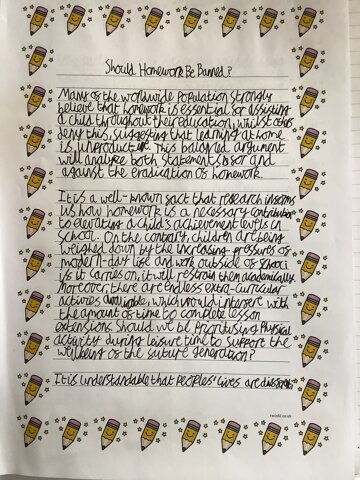 Should Homework Be Banned?
Many of the worldwide population strongly
believe that homework is essential for assisting
a child throughout their education, whilst others
deny this, suggesting that learning at home
is unproductive. This balanced argument
will analyse both statements for and
against the eradication of homework.
It is a well-known fact that research informs
us how homework is a necessary contribution
to elevating a child's achievement levels in
school. On the contrary, children are being
weighed down by the increasing pressures of
modern-day life and work outside of school;
if it carries on, it will restrain them academically.
Moreover, there are endless extra-curricular
activities available, which would interfere with
the amount of time to complete lesson
extensions. Should we be prioritising physical
activity during leisure time to support the
wellbeing of the future generation?
It is understandable that peoples' lives are
twinkl.co.uk